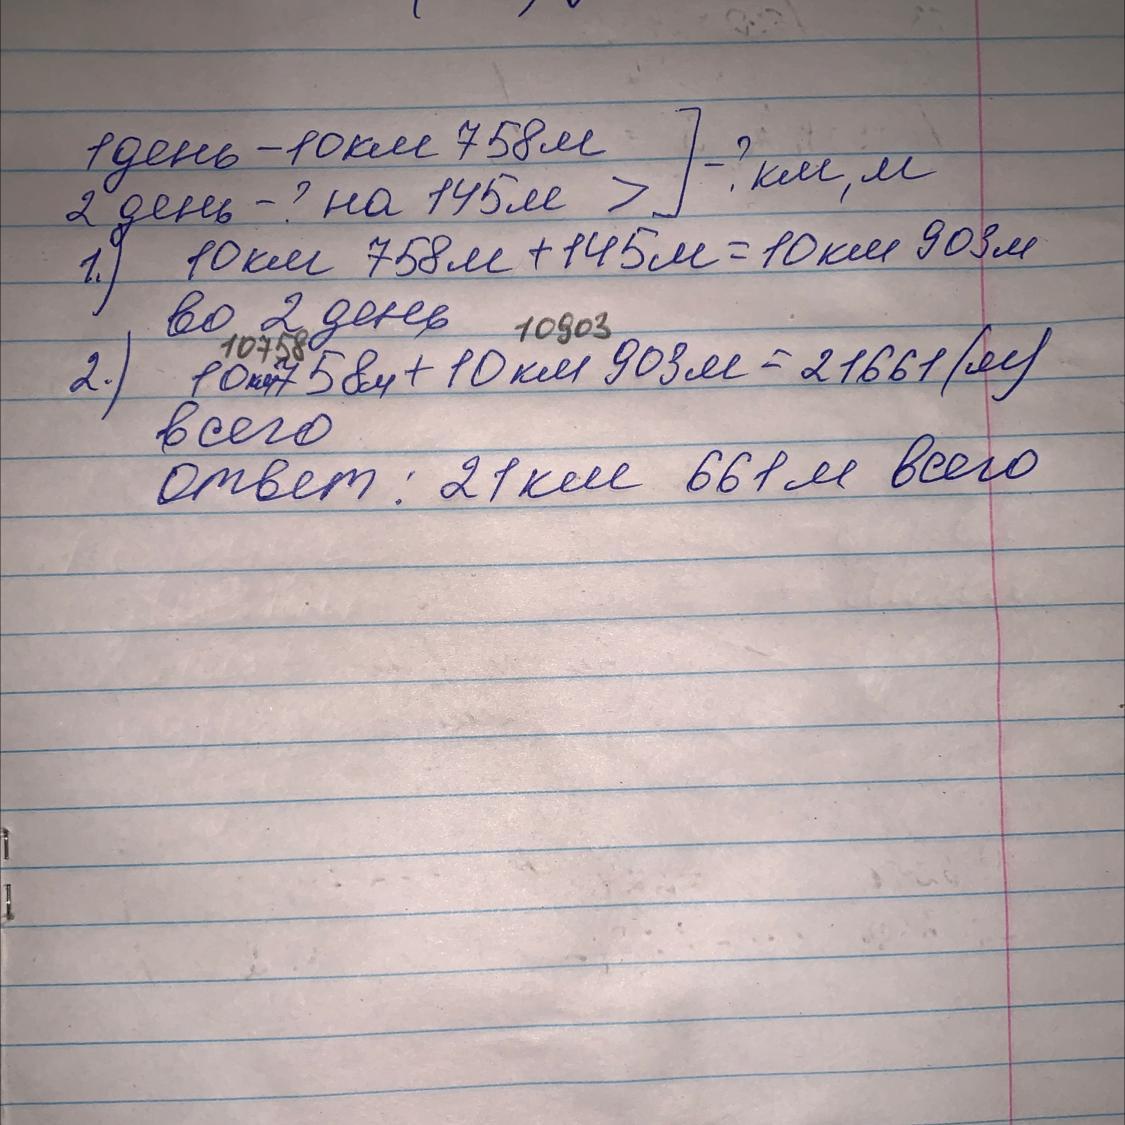 1 день – 10 км 758 м ] – ? км, м
2 день – ? на 145 м >
1.) 10 км 758 м + 145 м = 10 км 903 м
во 2 день
10758 10903
2.) 10 км 758 м + 10 км 903 м = 21661 (м)
всего
ответ : 21 км 661 м всего